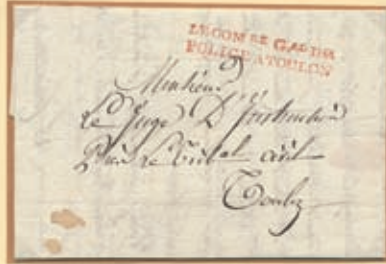 LE COM RE G.AL DE
POLICE A TOULON
Monsieur
Le Juge D'Instruction
Près Le civil
Toulon